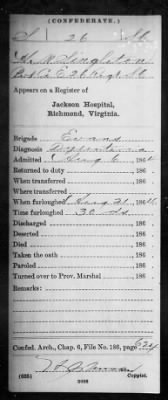 (CONFEDERATE.)
S 26
H. K. Singleton
Appears on a Register
of
Jackson Hospital,
Richmond, Virginia.
Brigade Evans
Diagnosis
Admitted Aug 6, 186
Returned to duty , 186
When transferred , 186
Where transferred
When furloughed Aug 21, 186
Time furloughed 30 ds
Discharged , 186
Deserted , 186
Died , 186
Taken the oath , 186
Paroled , 186
Turned over to Prov. Marshal , 186
Remarks:
Confed. Arch., Chap. 6, File No. 186, page 624
(635) Copyist.